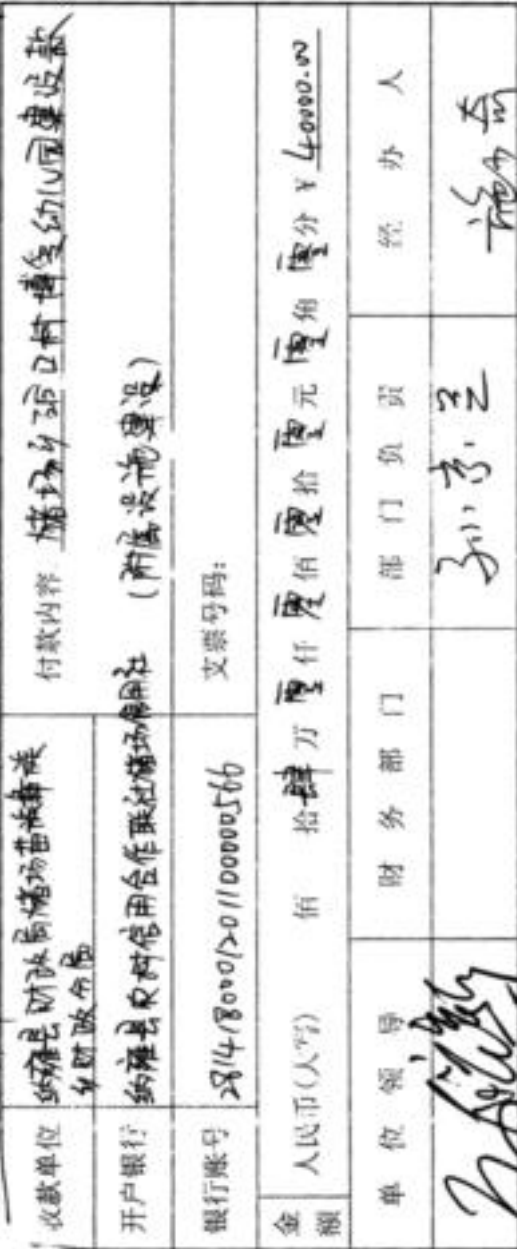 收款单位 纳雍县财政局猪场苗族彝族
乡财政分局
付款内容 猪场乡
开户银行 纳雍县农村信用合作联社猪场信用社
(附属设施建设)
银行账号 2814180001201100000566
支票号码:
金额 人民币(大写) 佰 拾 肆 万 零 仟 零 佰 零 拾 零 元 零 角 零 分 ¥ 40000.00
单位领导 财务部门 部门负责 经办人